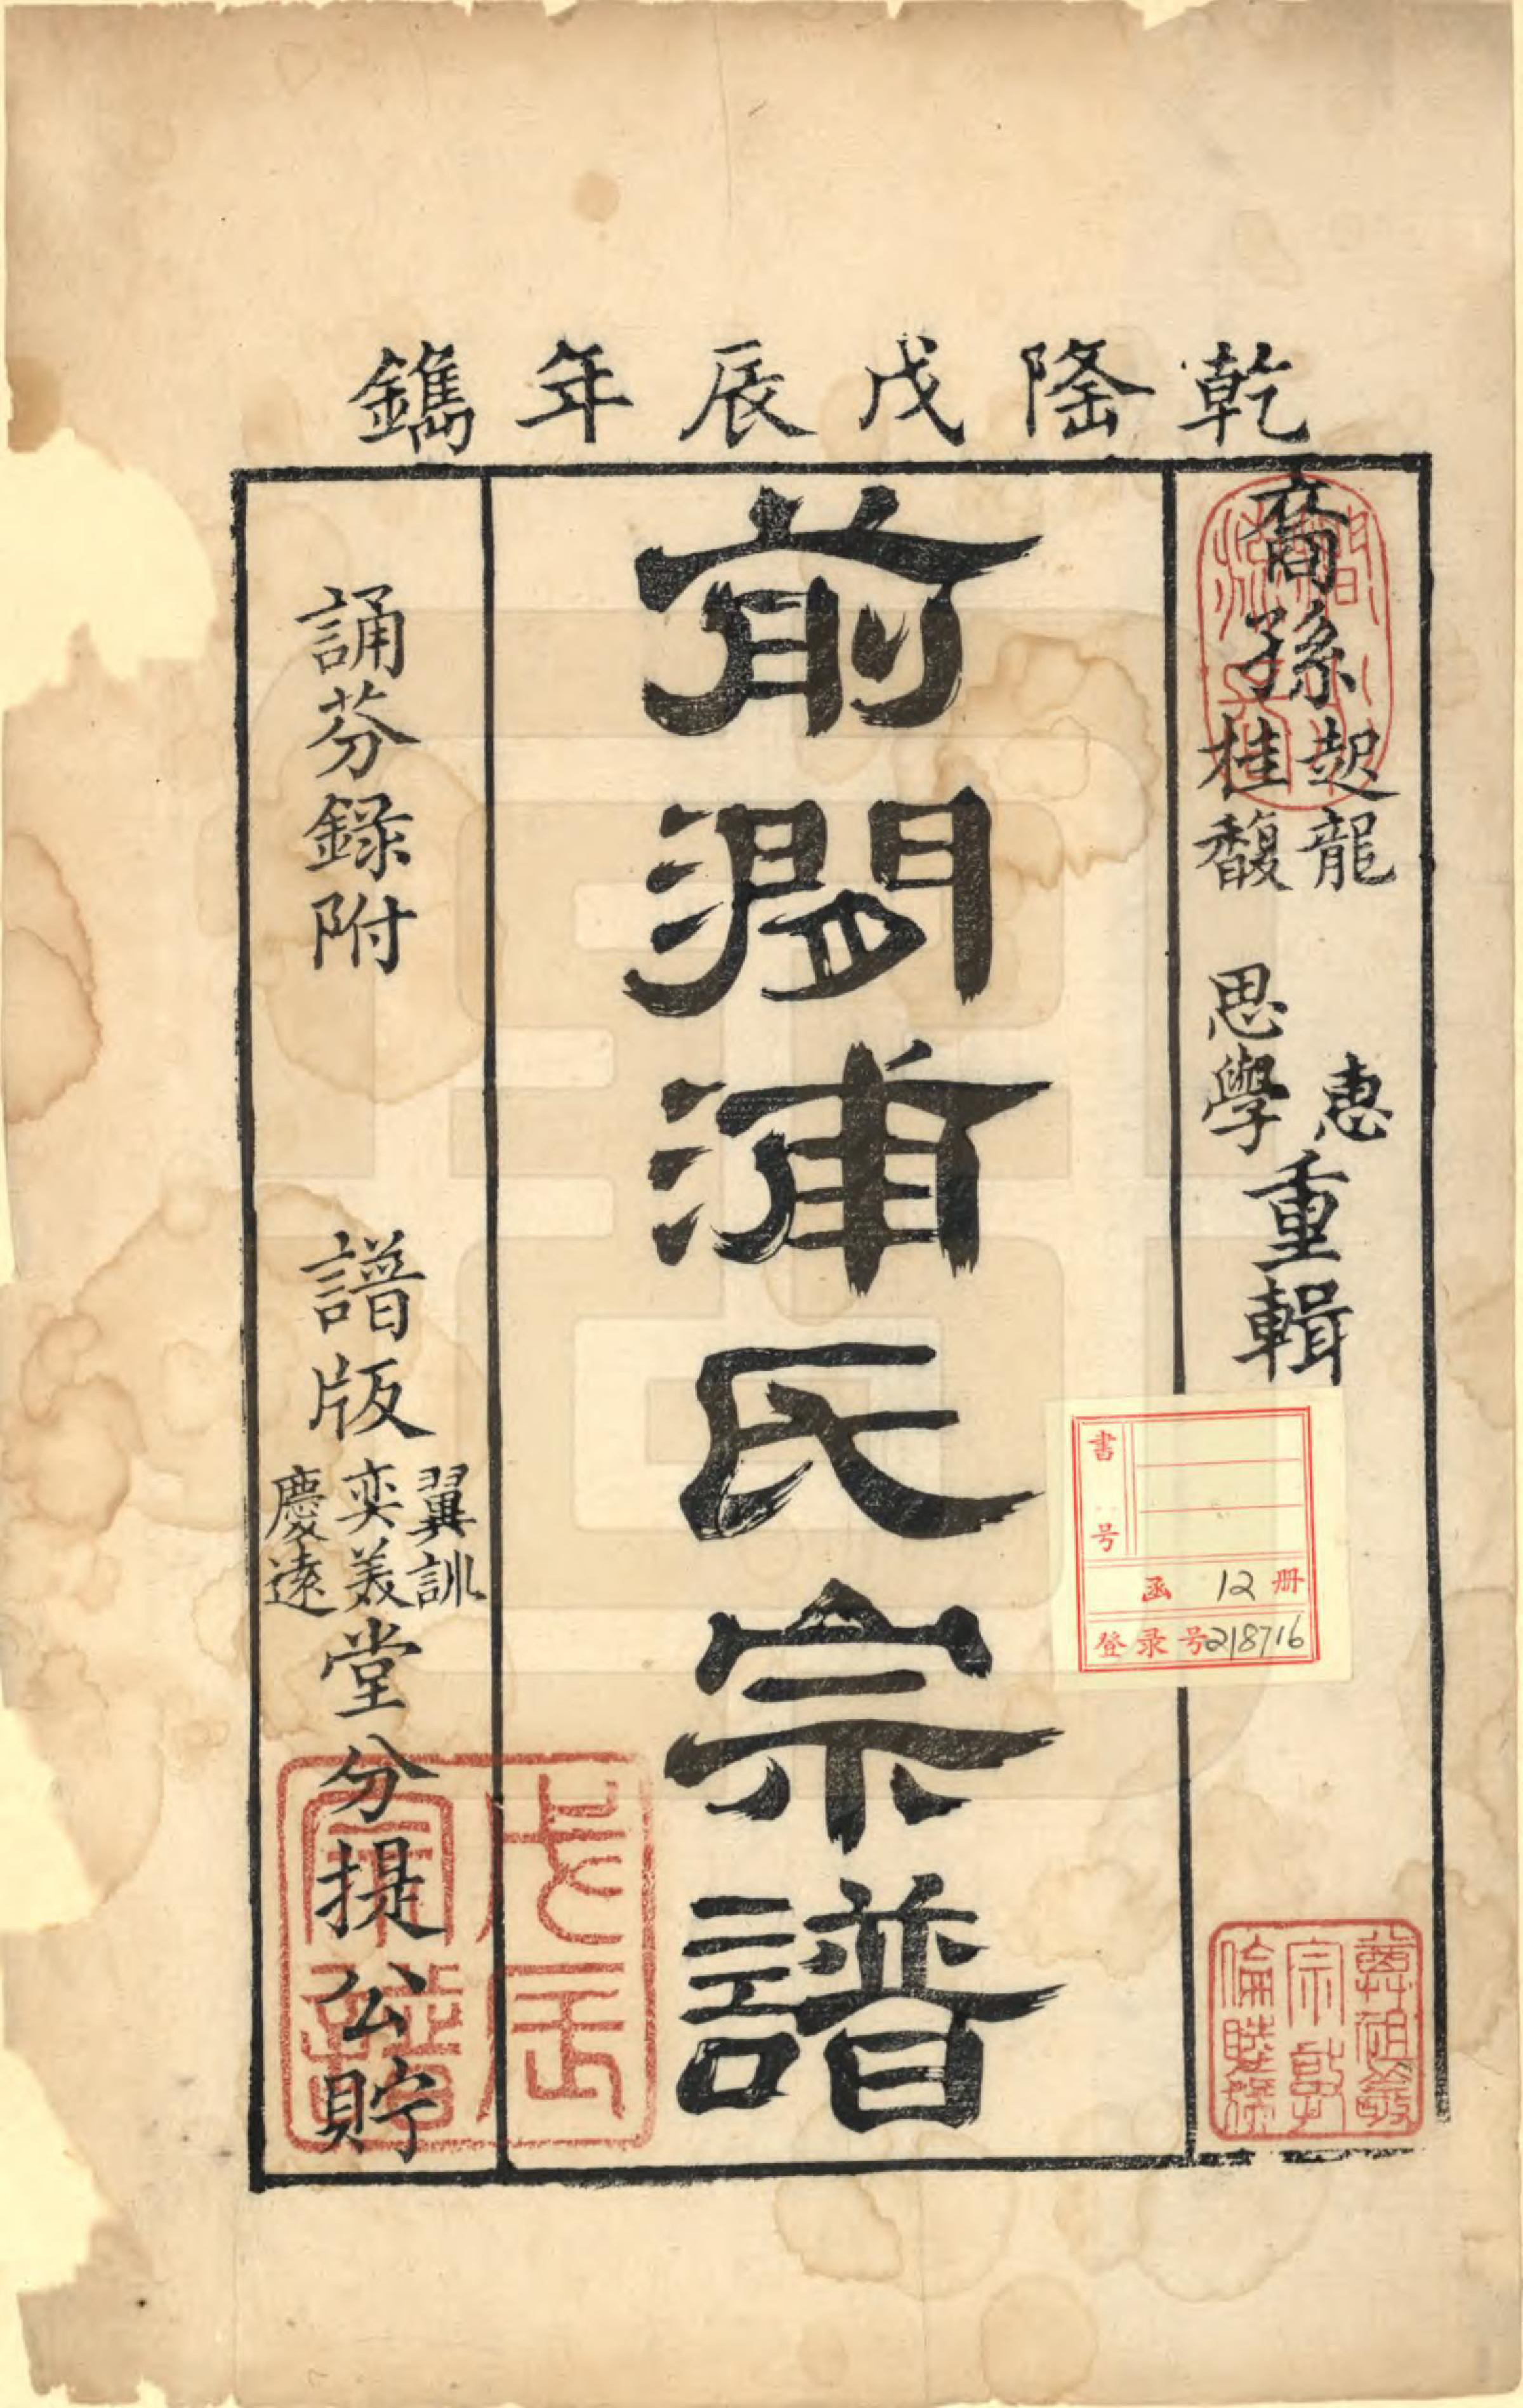 乾隆戊辰年鐫
裔孫
起龍 惠
桂馥 思學
重輯
前澗浦氏宗譜
誦芬錄附
譜版
翼訓
奕美
慶遠
堂分提公貯
書号
函 12 册
登录号218716